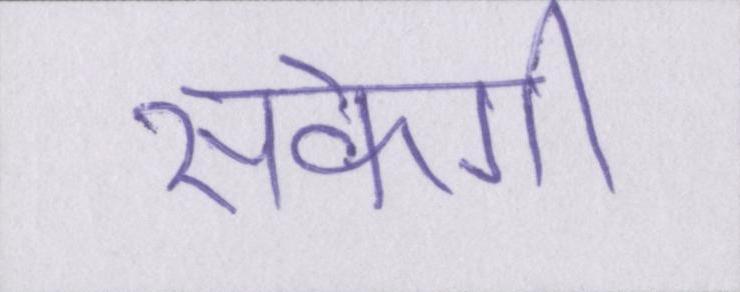 सकेगी